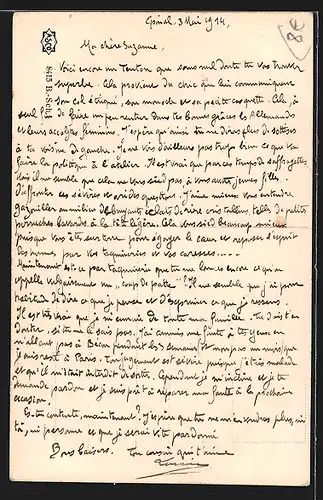 Epinal, 3 Mai 1914,
8e
8415 B.-Schj
Ma chère Suzanne,
Voici encore un Teuton que sans nul doute tu vas trouver
superbe. Cela provient du chic que lui communiquent
son col étriqué, son monocle et sa petite casquette. Cela, à
seul fin de faire un peu rentrer dans tes bonnes grâces les Allemands
et leurs accolytes féminins. J'espère qu'ainsi tu ne diras plus de sottises
à ta voisine de gauche. Je ne vois d'ailleurs pas trop bien ce que va
faire la politique à l'atelier. Il est vrai que par ces temps de suffragettes
Mais il me semble que cela ne vous sied pas, à vous autres jeunes filles
d'affronter ces sévères et arides questions. J'aime mieux vous entendre
gazouiller au milieu de bruyants éclats de rire cristallins, telles de petites
perruches bavardes à la tête légère. Cela vous sied beaucoup mieux
puisque vous êtes sur terre pour égayer le cœur et reposer l'esprit
des hommes par vos taquineries et vos caresses....
Maintenant est-ce par taquinerie que tu me donnes encore ce qu'on
appelle vulgairement un "coup de patte"? Il me semble que j'ai pour
habitude de dire ce que je pense et d'exprimer ce que je ressens.
Il est très vrai que je m'ennuie de toute ma famille. Tu dois t'en
douter, si tu ne le sais pas. J'ai commis une faute à tes yeux en
n'allant pas à Bécon pendant les 3 semaines et non pas un mois que
je suis resté à Paris. Ton jugement est sévère puisque j'étais malade
et qu'il m'était interdit de sortir. Cependant je m'incline et je te
demande pardon et je suis prêt à réparer ma faute à la prochaine
occasion.
Es-tu contente, maintenant? J'espère que tu ne m'en voudras plus, ni
toi, ni personne et que je serai vite pardonné
Bons baisers. Ton cousin qui t'aime